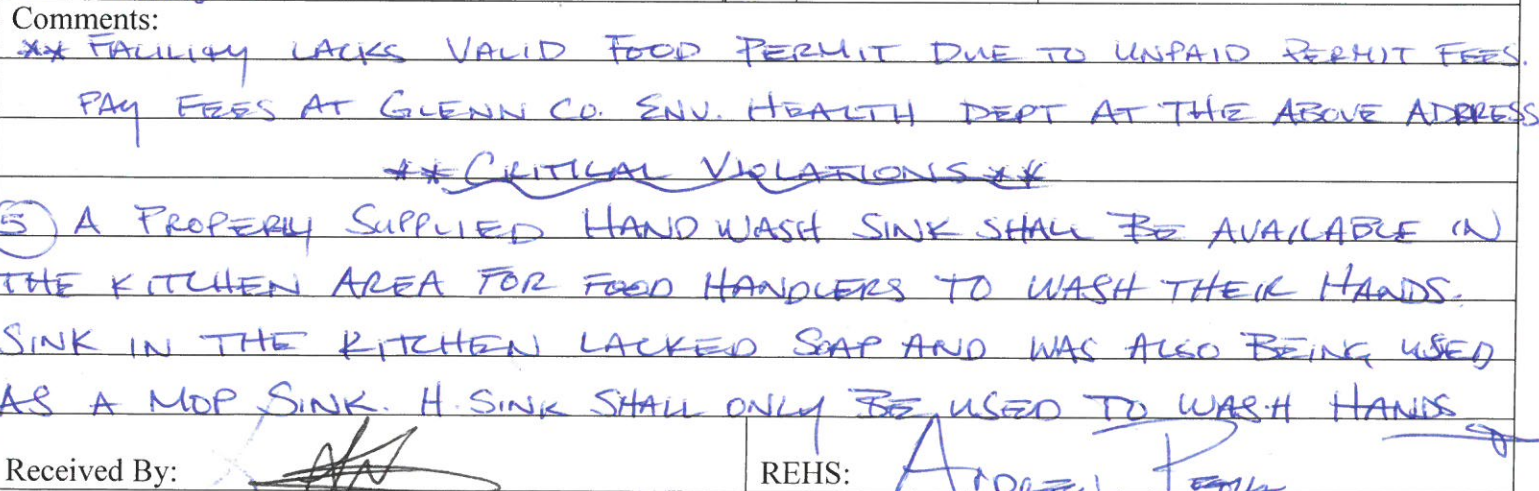 Comments:
** FACILITY LACKS VALID FOOD PERMIT DUE TO UNPAID PERMIT FEES.
PAY FEES AT GLENN CO. ENV. HEALTH DEPT AT THE ABOVE ADDRESS
** CRITICAL VIOLATIONS **
5 A PROPERLY SUPPLIED HAND WASH SINK SHALL BE AVAILABLE IN
THE KITCHEN AREA FOR FOOD HANDLERS TO WASH THEIR HANDS.
SINK IN THE KITCHEN LACKED SOAP AND WAS ALSO BEING USED
AS A MOP SINK. H. SINK SHALL ONLY BE USED TO WASH HANDS
Received By:
REHS: